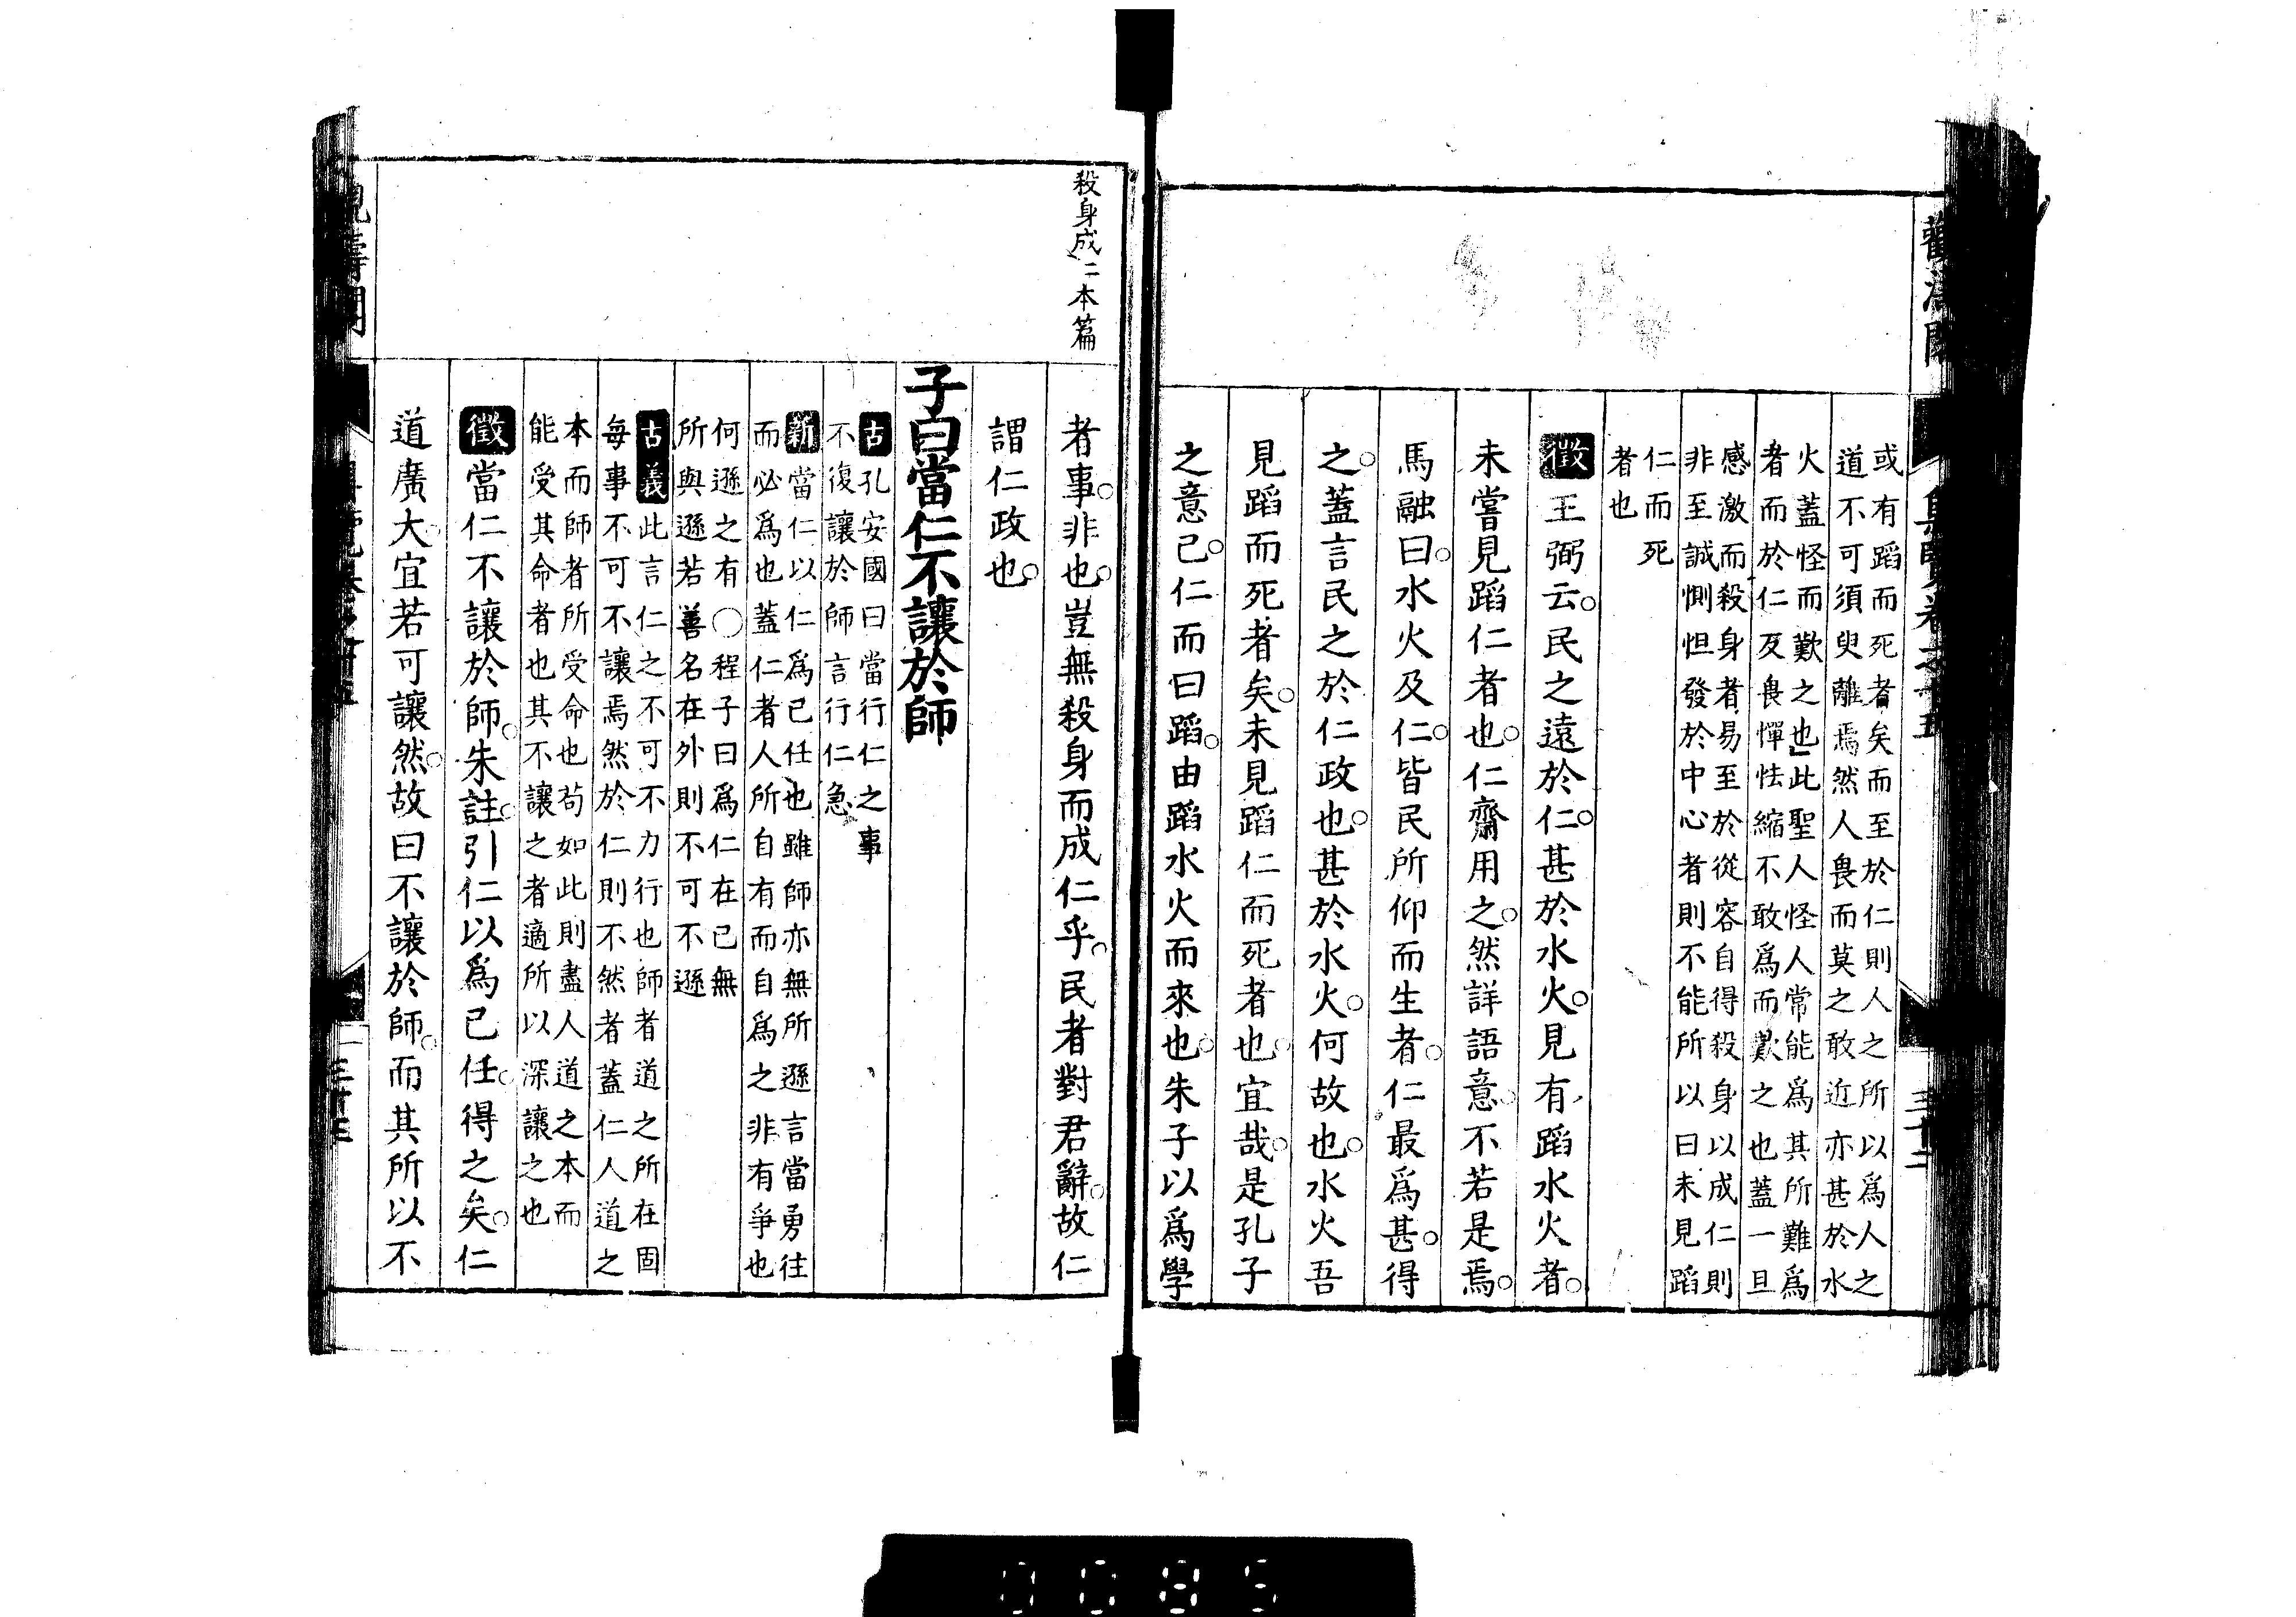 或有蹈而死者矣而至於仁則人之所以為人之
道不可須臾離焉然人畏而莫之敢近亦甚於水
火蓋怪而歎之也此聖人怪人常能爲其所難爲
者而於仁反畏憚怯縮不敢爲而歎之也蓋一旦
感激而殺身者易至於從容自得殺身以成仁則
非至誠惻怛發於中心者則不能所以曰未見蹈
仁而死
者也
徵王弼云民之遠於仁甚於水火見有蹈水火者
未嘗見蹈仁者也仁齋用之然詳語意不若是焉
馬融曰水火及仁皆民所仰而生者仁最爲甚得
之蓋言民之於仁政也甚於水火何故也水火吾
見蹈而死者矣未見蹈仁而死者也宜哉是孔子
之意已仁而曰蹈由蹈水火而來也朱子以爲學
殺身成仁本篇
者事非也豈無殺身而成仁乎民者對君辭故仁
謂仁政也
子曰當仁不讓於師
古孔安國曰當行仁之事
不復讓於師言行仁急
新當仁以仁爲己任也雖師亦無所遜言當勇往
而必爲也蓋仁者人所自有而自爲之非有爭也
何遜之有○程子曰爲仁在己無
所與遜若善名在外則不可不遜
古義此言仁之不可不力行也師者道之所在固
每事不可不讓焉然於仁則不然者蓋仁人道之
本而師者所受命也苟如此則盡人道之本而
能受其命者也其不讓之者適所以深讓之也
徵當仁不讓於師朱註引仁以爲己任得之矣仁
道廣大宜若可讓然故曰不讓於師而其所以不